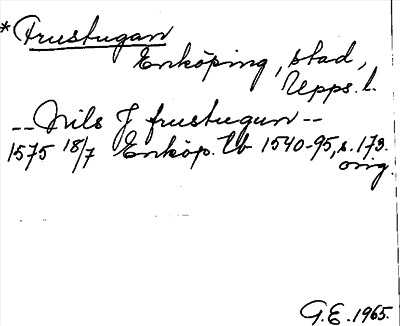 *Frustugan
Enköping, stad,
Upps. l.
-- Nils J frustugun --
1575 18/7 Enköp. Tb 1540-95, s. 173.
orig
G.E. 1965.